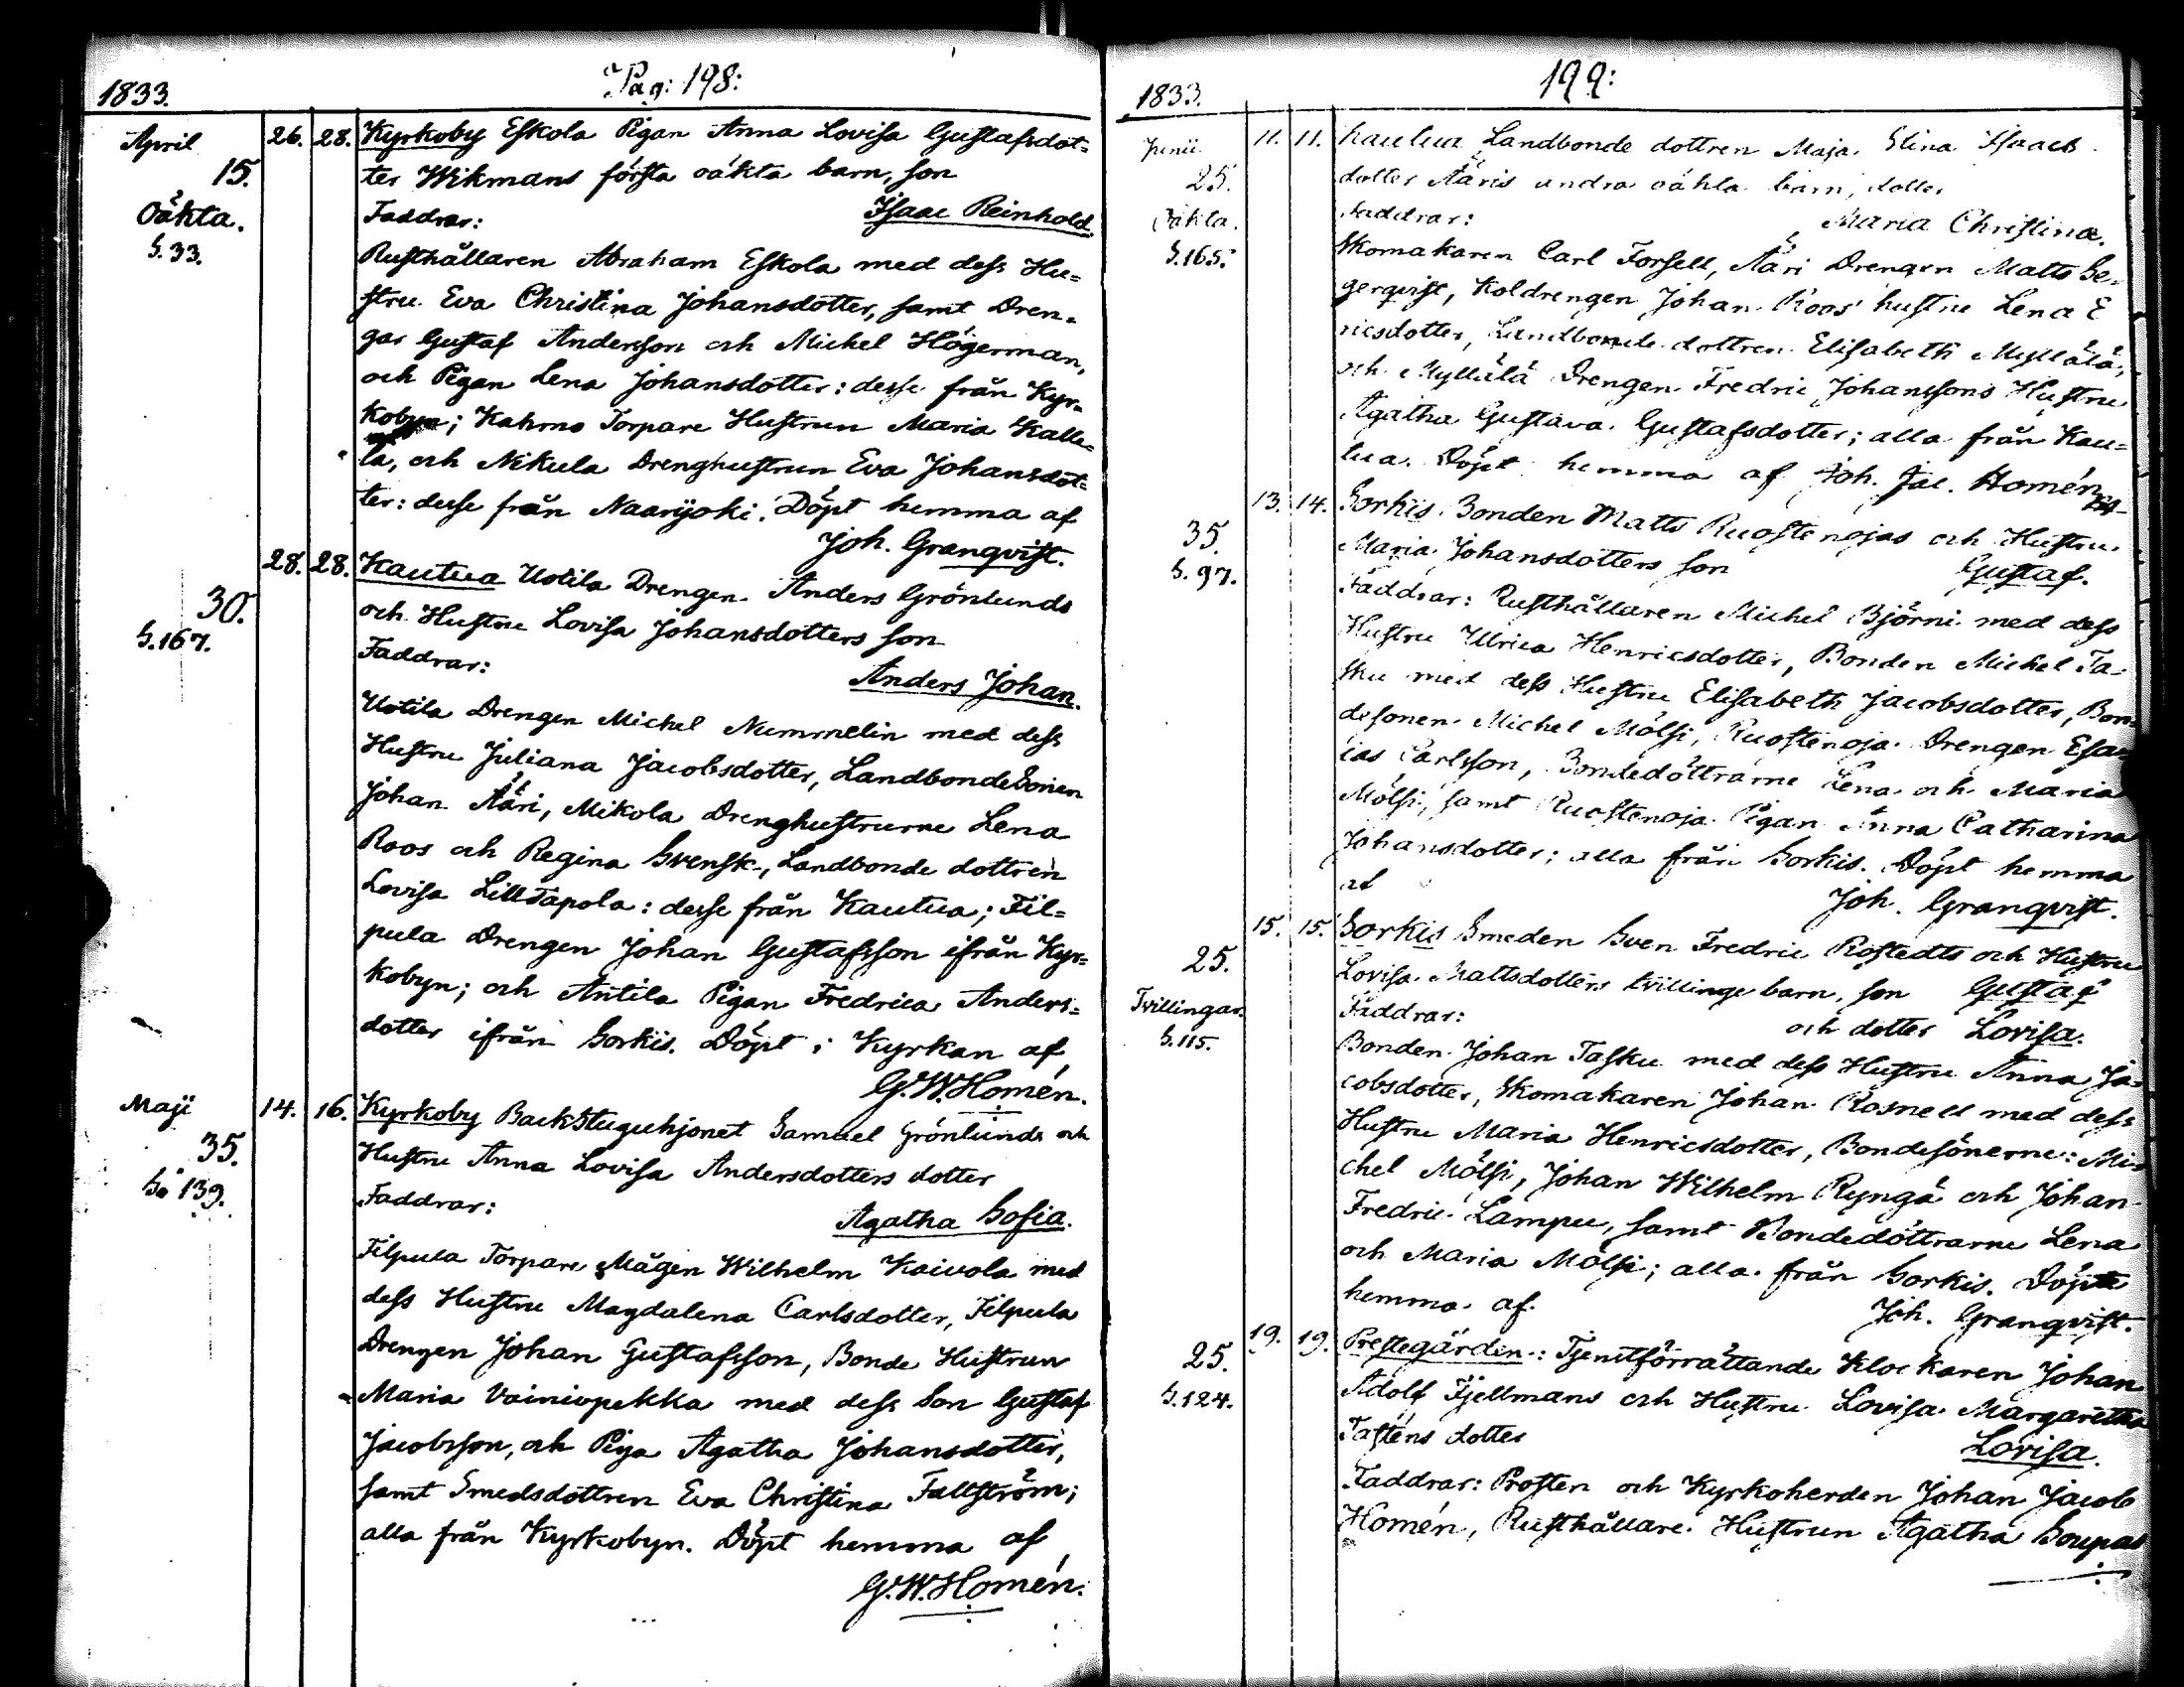 Pag: 198:
1833.
April 26. 28. Kyrkoby Eskola Pigan Anna Lovisa Gustafsdot=
15. ter Wikmans första oäkta barn, son
Oäkta. Faddrar: Isaac Reinhold.
S. 33. Rusthållaren Abraham Eskola med dess Hu=
stru Eva Christina Johansdotter, samt Dren=
gar Gustaf Andersson och Michel Högerman,
och Pigan Lena Johansdotter: desse från Kyr=
kobyn; Kahmo Torpare Hustrun Maria Kalle=
la, och Nikula Drenghustrun Eva Johansdot=
ter: desse från Naarijoki. Döpt hemma af
Joh. Granqvist.
28. 28. Kautua Uotila Drengen Anders Grönlunds
30. och Hustru Lovisa Johansdotters son
S. 167. Faddrar: Anders Johan.
Uotila Drengen Michel Nummelin med dess
Hustru Juliana Jacobsdotter, LandbondeSonen
Johan Ääri, Mikola Drenghustrurne Lena
Roos och Regina Svensk, Landbonde dottren
Lovisa LillTapola: desse från Kautua; Fil=
pula Drengen Johan Gustafsson ifrån Kyr=
kobyn; och Antila Pigan Fredrica Anders=
dotter ifrån Sorkis. Döpt i Kyrkan af
G. W. Homén.
Maji 14. 16. Kyrkoby Backstuguhjonet Samuel Grönlunds och
35. Hustru Anna Lovisa Andersdotters dotter
S. 139. Faddrar: Agatha Sofia.
Filpula Torpare Mågen Wilhelm Kaivola med
dess Hustru Magdalena Carlsdotter, Filpula
Drengen Johan Gustafsson, Bonde Hustrun
Maria Vainionpekka med dess Son Gustaf
Jacobsson, och Piga Agatha Johansdotter,
samt Smedsdottren Eva Christina Fallström;
alla från Kyrkobyn. Döpt hemma af
G. W. Homén.
199:
1833.
Junii 11. 11. Kautua Landbonde dottren Maja Elina Isaacs
25. dotter Ääris andra oäkta barn, dotter
Oäkta. Faddrar: Maria Christina.
S. 165. Skomakaren Carl Forsell, Ääri Drengen Matts Se=
gerqvist, Koldrengen Johan Roos' hustru Lena E
ricsdotter, Landbonde dottren Elisabeth Myllälä,
och Myllälä Drengen Fredric Johanssons Hustru
Agatha Gustava Gustafsdotter; alla från Kau=
tua. Döpt hemma af Joh. Jac. Homén
13. 14. Sorkis Bonden Matts Ruostenojas och Hustru
35. Maria Johansdotters son Gustaf.
S. 97. Faddrar: Rusthållaren Michel Björni med dess
Hustru Ulrica Henricsdotter, Bonden Michel Ta=
sku med dess Hustru Elisabeth Jacobsdotter, Bon=
desonen Michel Mölsi, Ruostenoja Drengen Esa=
ias Carlsson, Bondedöttrarne Lena och Maria
Mölsi, samt Ruostenoja Pigan Anna Catharina
Johansdotter; alla från Sorkis. Döpt hemma
af Joh. Granqvist.
15. 15. Sorkis Smeden Sven Fredric Rostedts och Hustru
25. Lovisa Mattsdotters tvillinge barn, son Gustaf
Tvillingar. Faddrar: och dotter Lovisa.
S. 115. Bonden Johan Tasku med dess Hustru Anna Ja=
cobsdotter, Skomakaren Johan Rosnell med dess
Hustru Maria Henricsdotter, Bondesönerne: Mi=
chel Mölsi, Johan Wilhelm Ryngä och Johan
Fredric Lampu, samt Bondedöttrarne Lena
och Maria Mölsi; alla från Sorkis. Döpte
hemma af Joh. Granqvist.
19. 19. Prestegården: Tjenstförrättande Klockaren Johan
25. Adolf Fjellmans och Hustru Lovisa Margaretha
S. 124. Tasténs dotter Lovisa.
Faddrar: Prosten och Kyrkoherden Johan Jacob
Homén, Rusthållare Hustrun Agatha Soupas